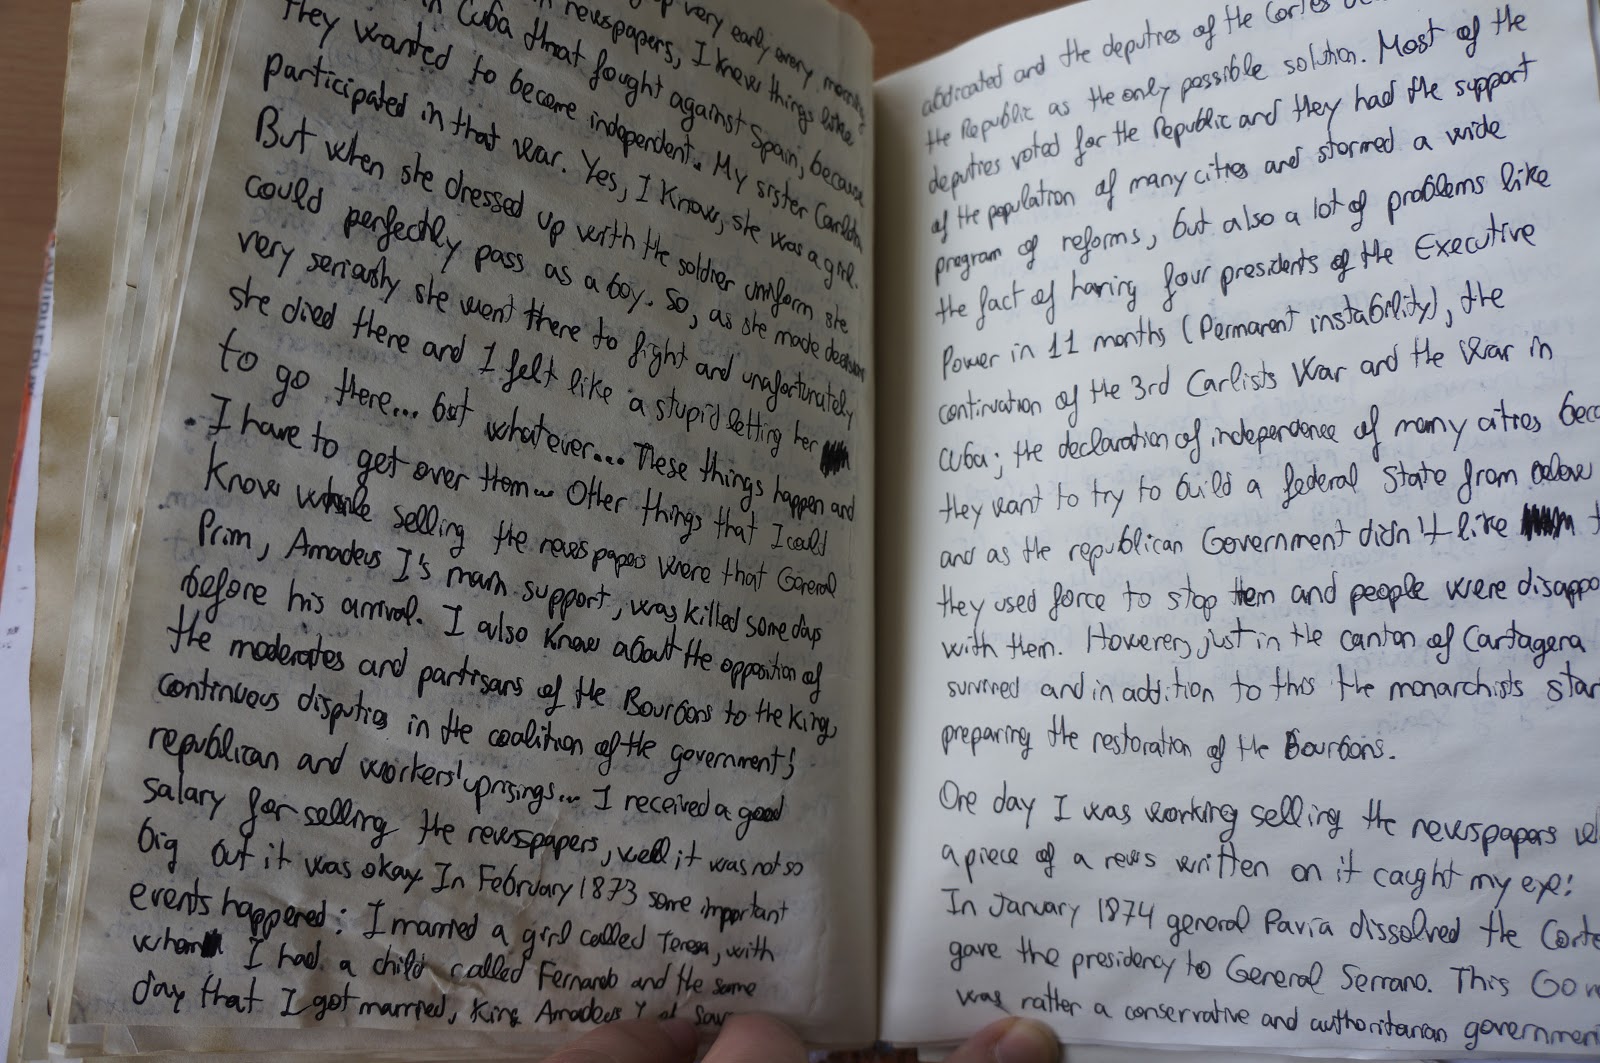 up very early every morning
newspapers, I knew things like
in Cuba that fought against Spain, because
they wanted to become independent. My sister Carlota
participated in that war. Yes, I know, she was a girl.
But when she dressed up with the soldier uniform she
could perfectly pass as a boy. So, as she made decision
very seriously she went there to fight and unafortunately
she died there and I felt like a stupid letting her
to go there... but whatever... These things happen and
I have to get over them... Other things that I could
know while selling the newspapers were that General
Prim, Amadeus I's main support, was killed some days
before his arrival. I also know about the opposition of
the moderates and partisans of the Bourbons to the King,
continuous disputies in the coalition of the government;
republican and workers' uprisings... I received a good
salary for selling the newspapers, well it was not so
big but it was okay. In February 1873 some important
events happened: I married a girl called Teresa, with
whom I had a child called Fernando and the same
day that I got married, King Amadeus I of
abdicated and the deputies of the Cortes
the Republic as the only possible solution. Most of the
deputies voted for the Republic and they had the support
of the population of many cities and stormed a wide
program of reforms, but also a lot of problems like
the fact of having four presidents of the Executive
Power in 11 months (Permanent instability), the
continuation of the 3rd Carlists War and the War in
Cuba; the declaration of independence of many cities beca
they want to try to build a federal State from below
and as the republican Government didn't like
they used force to stop them and people were disappo
with them. However, just in the canton of Cartagena
survived and in addition to this the monarchists star
preparing the restoration of the Bourbons.
One day I was working selling the newspapers
a piece of a news written on it caught my eye!
In January 1874 general Pavía dissolved the Corte
gave the presidency to General Serrano. This Gov
was rather a conservative and authoritarian governmen